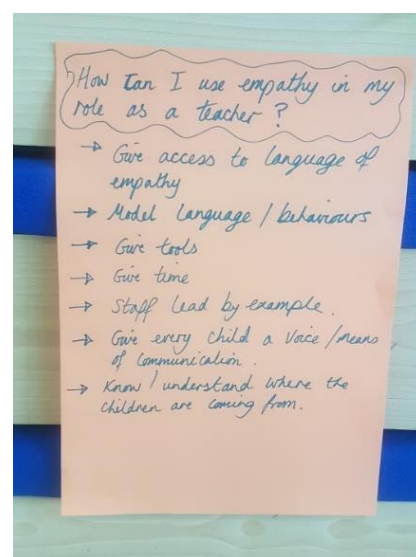 How Can I use empathy in my
role as a teacher?
→ Give access to language of
empathy
→ Model language / behaviours
→ Give tools
→ Give time
→ Staff lead by example.
→ Give every child a voice / means
of communication.
→ Know / understand where the
children are coming from.